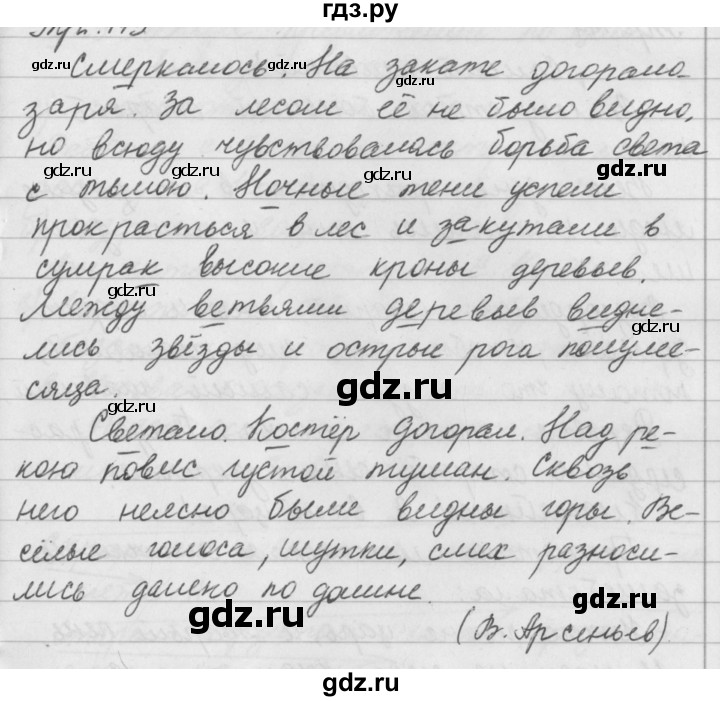 гдз.ру
Смеркалось. На закате догорала
заря. За лесом её не было видно,
но всюду чувствовалась борьба света
с тьмою. Ночные тени успели
прокрасться в лес и закутали в
сумрак высокие кроны деревьев.
Между ветвями деревьев видне-
лись звёзды и острые рога полуме-
сяца.
Светало. Костёр догорал. Над ре-
кою повис густой туман. Сквозь
него неясно были видны горы. Ве-
сёлые голоса, шутки, смех разноси-
лись далеко по долине.
(В. Арсеньев)
gdz.ru